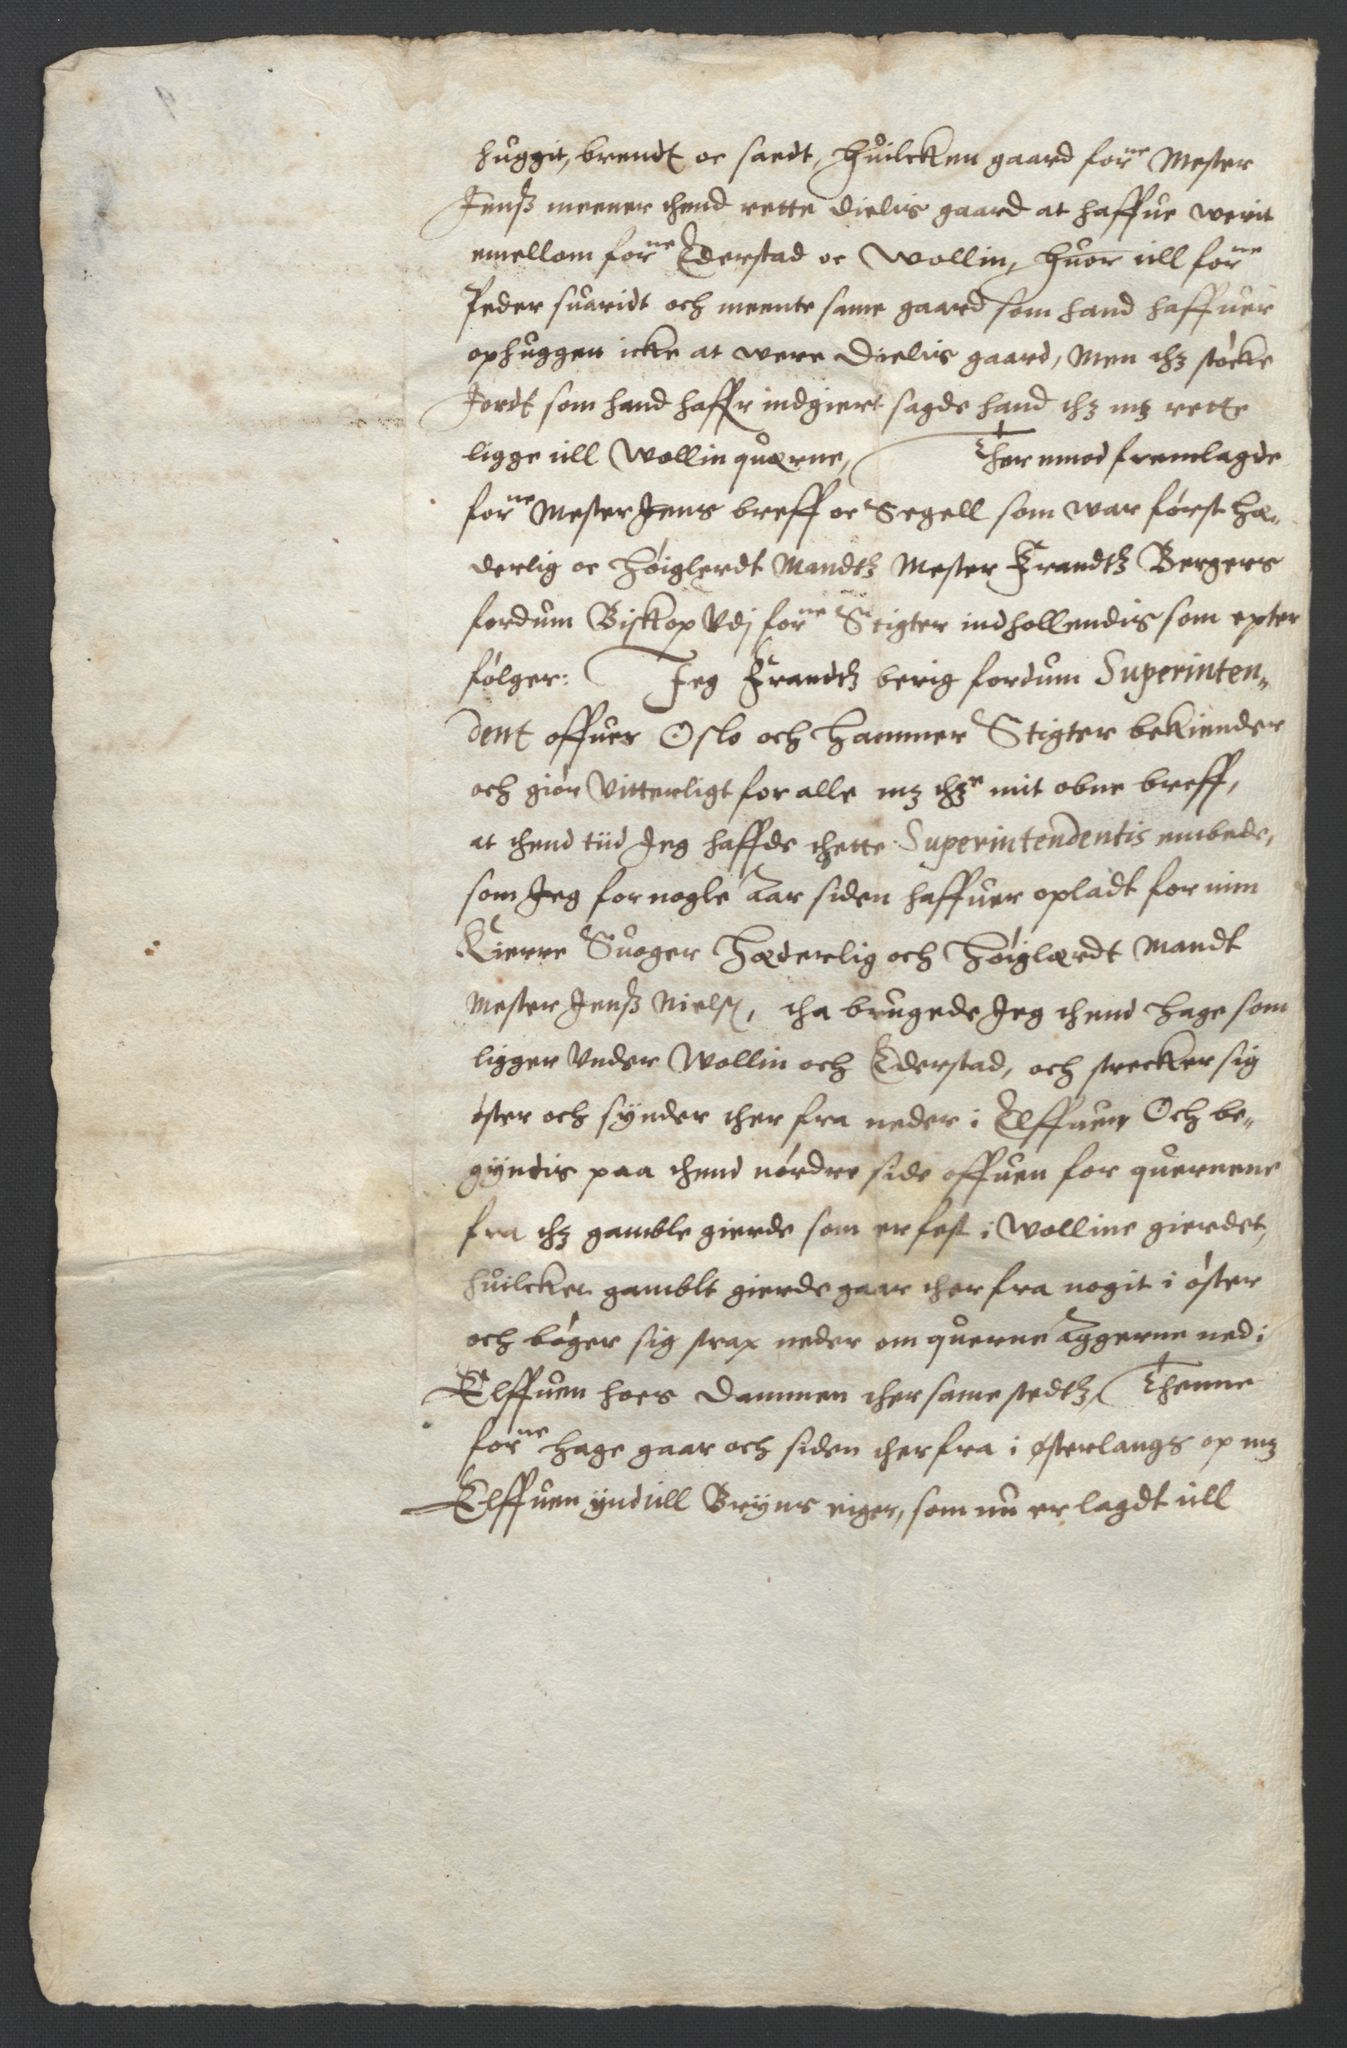 huggit, brendt oc saedt, huilcken gaard forne Mester
Jenß meener thend rette dielis gaard at haffue werit
emellom forne Ederstad oc Wollin, huor till forne
Peder suaridt och meente same gaard som hand haffuer
ophuggen icke at were Dielis gaard, Men thz støcke
Jordt som hand haffr indgiert sagde hand thz mz rette
ligge till Wollin quærne, Ther emod fremlagde
forne Mester Jens breff oc Segell som war først Hæ-
derlig oc Høiglerdt Mandtz Mester Frandtz Bergers
fordum Biskop Vdj forne Stigter indhollendis som epter
følger: Jeg Frandtz berig fordum Superinten-
dent offuer Oslo och Hammer Stigter bekiender
och giør Vitterligt for alle mz thze mit obne breff,
at thend tiid Jeg haffde thette Superintendentis embede,
som Jeg for nogle Aar siden haffuer opladt for min
Kierre Suoger Hæderlig och Høiglærdt Mandt
Mester Jenß Niels, tha brugede Jeg thend Hage som
ligger Vnder Wollin och Ederstad, och strecker sig
øster och synder ther fra neder i Elffuen Och be-
gyndis paa thend nørdre side offuen for quernene
fra thz gamble gierde som er fest i Wolline gierdet,
huilcket gamblt gierde gaar ther fra nogit i øster
och bøger sig strax neder om querne Aggerne ned i
Elffuen hoes Dammen ther same stedtz, Thenne
forne Hage gaar och siden ther fra i østerlangs op mz
Elffuen ynd till Bryns eiger, som nu er lagdt till